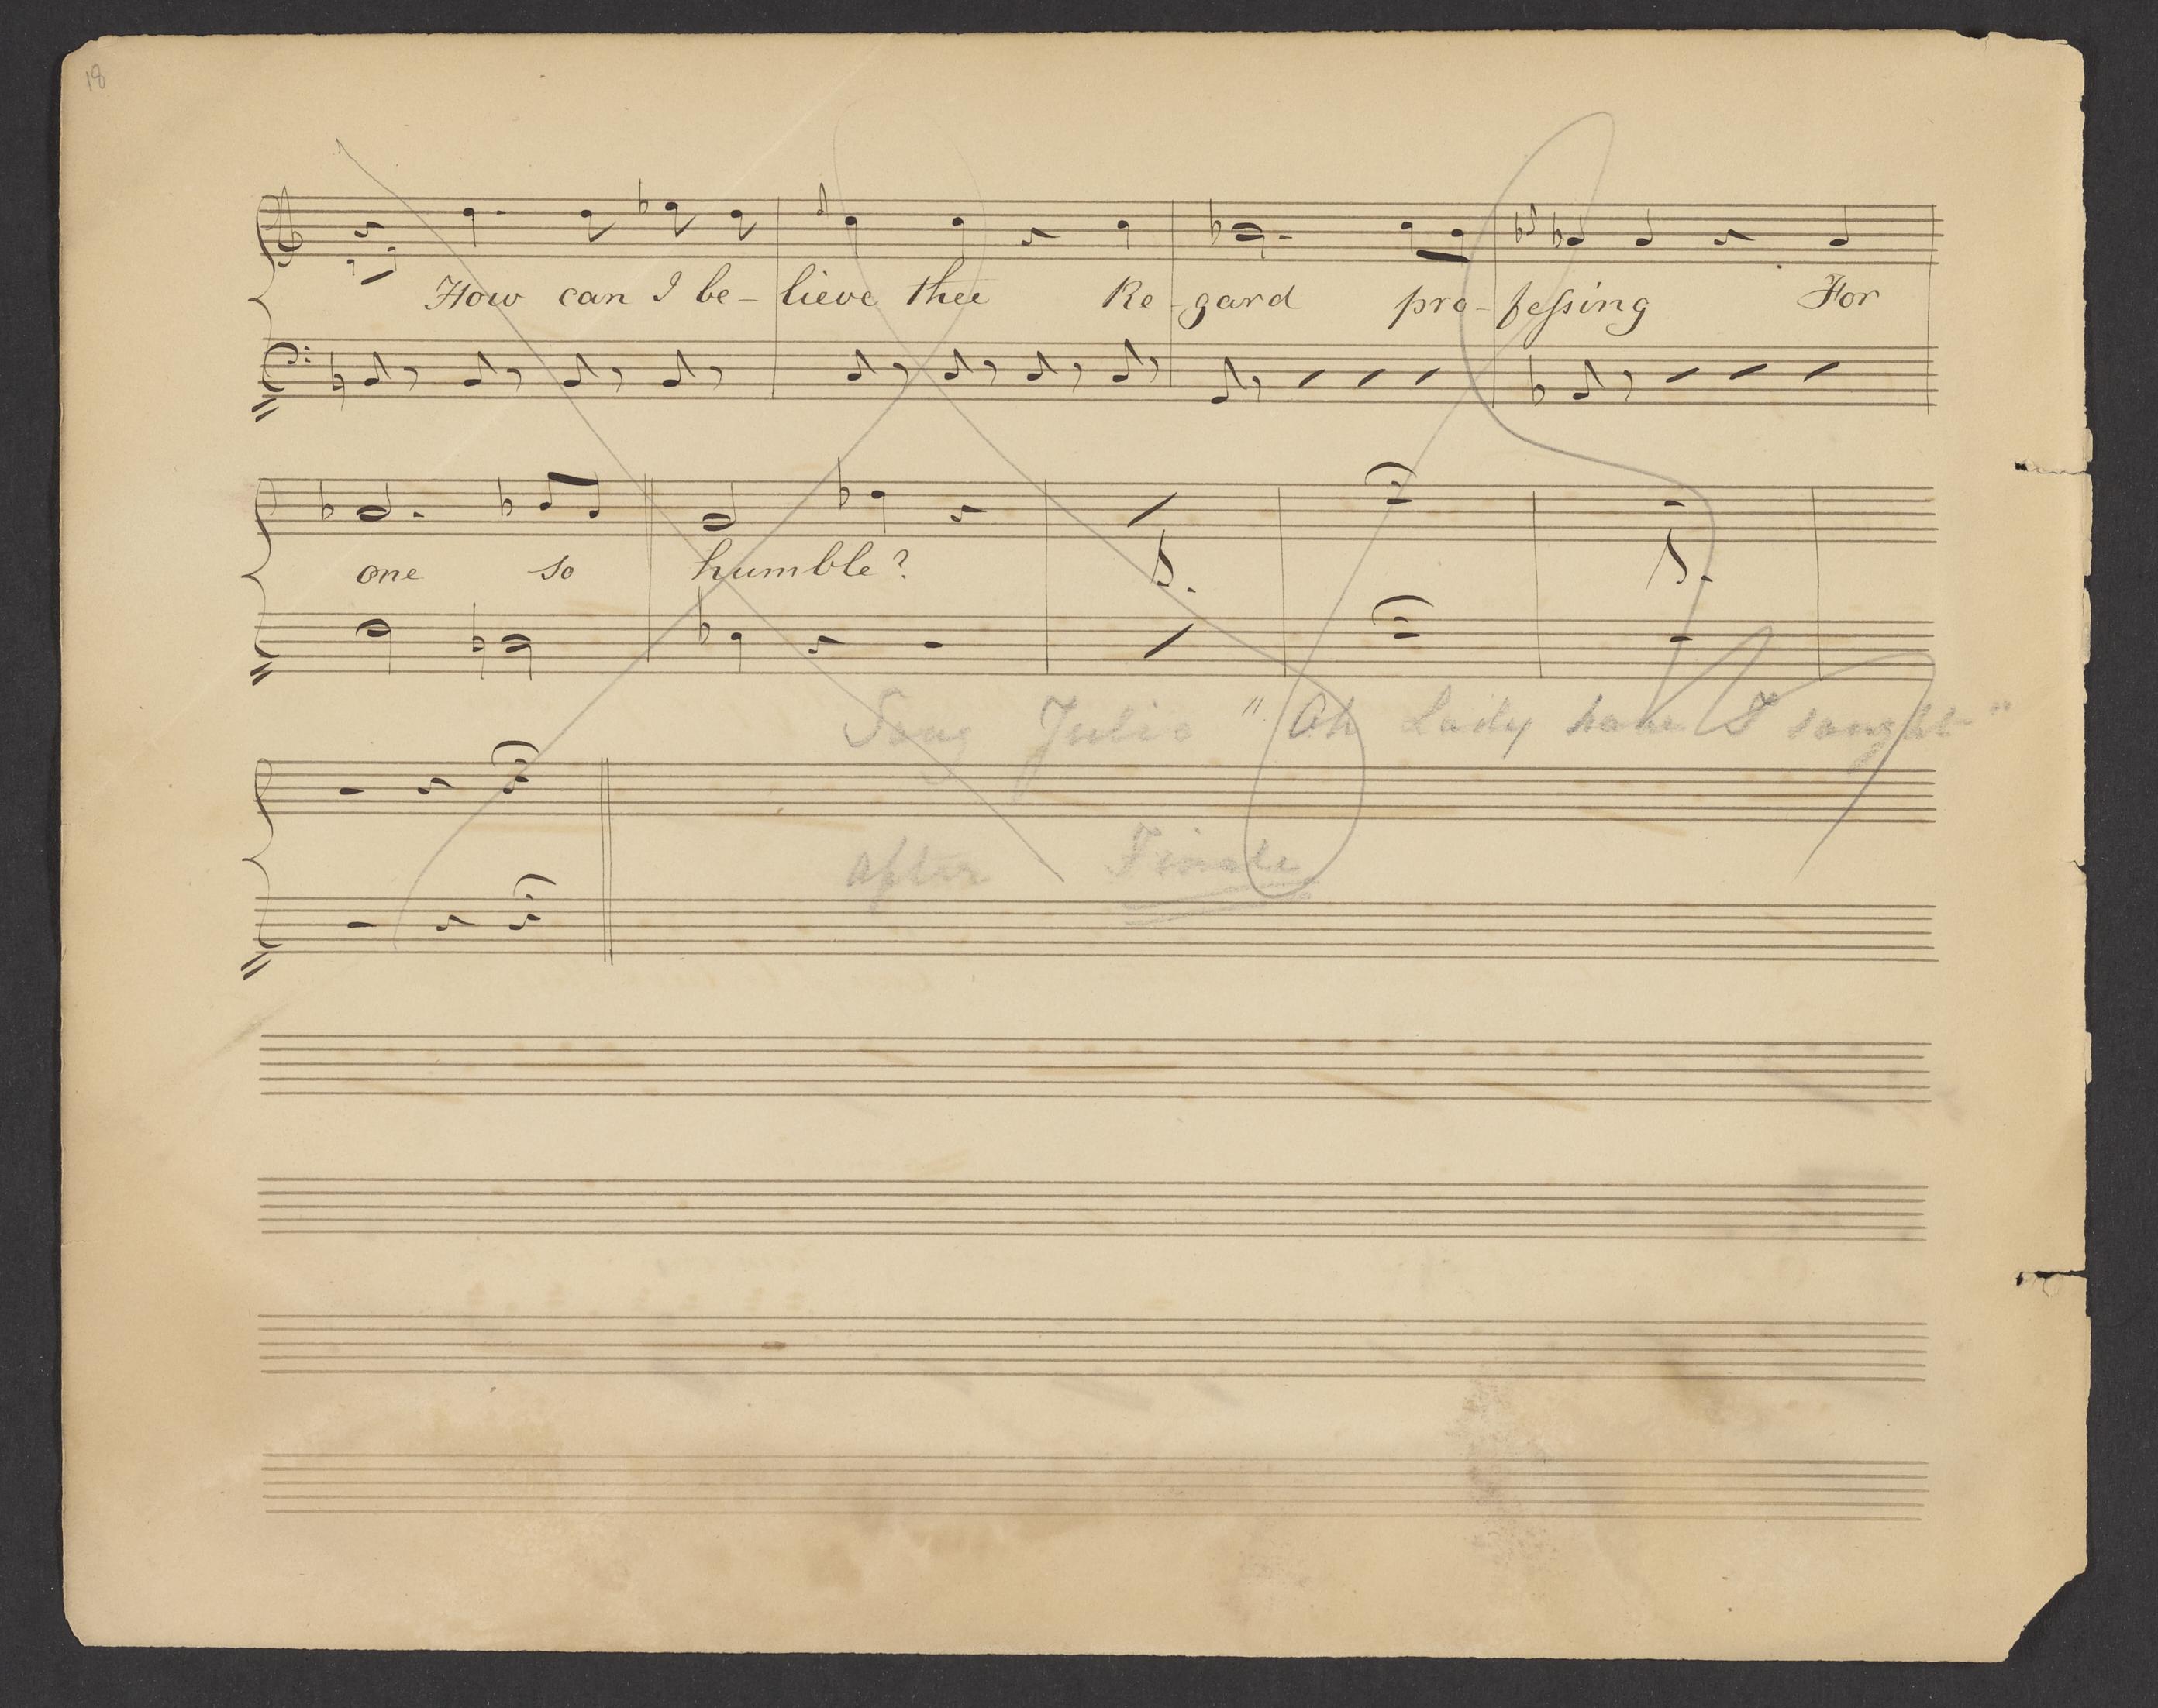 18
How can I be- lieve thee Re- gard pro- feſsing For
one so humble?
Song Julio "Oh Lady have I sought"
after Finale